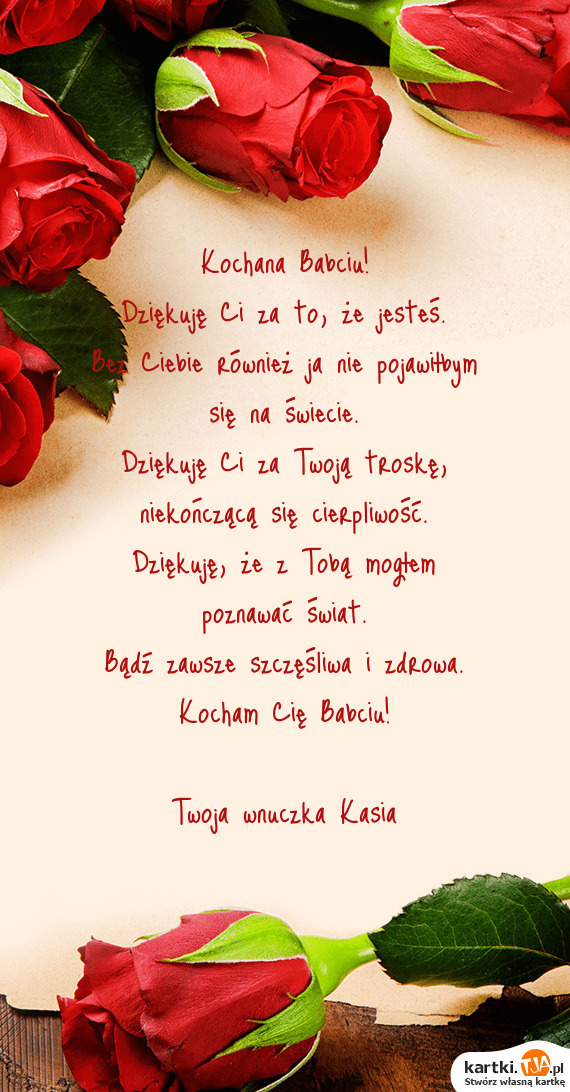 Kochana Babciu!
Dziękuję Ci za to, że jesteś.
Bez Ciebie również ja nie pojawiłbym
się na świecie.
Dziękuję Ci za Twoją troskę,
niekończącą się cierpliwość.
Dziękuję, że z Tobą mogłem
poznawać świat.
Bądź zawsze szczęśliwa i zdrowa.
Kocham Cię Babciu!
Twoja wnuczka Kasia
kartki.TJA.pl
Stwórz własną kartkę